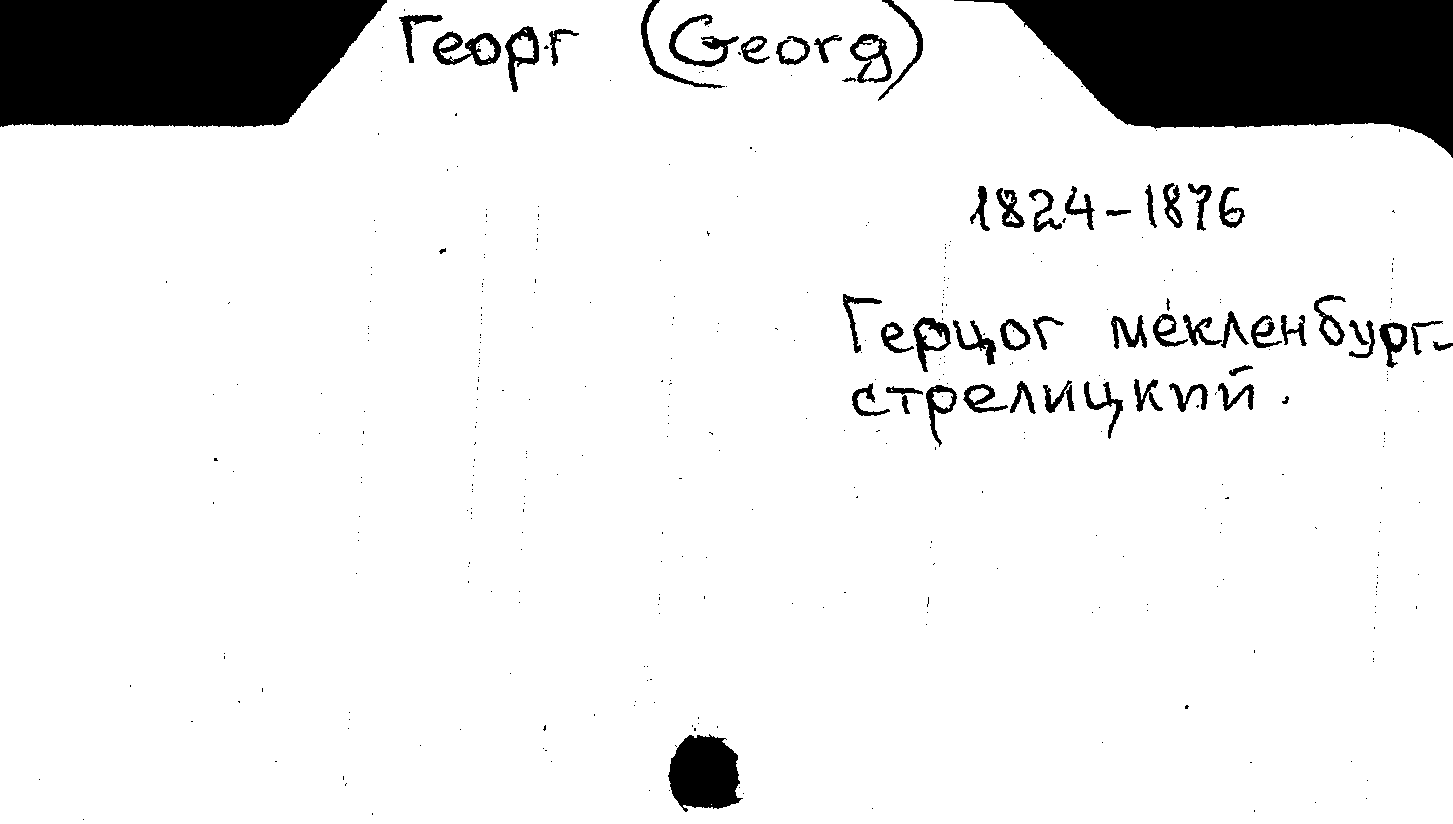 Георг (Georg)
1824-1876
Герцог мекленбург-
стрелицкий.